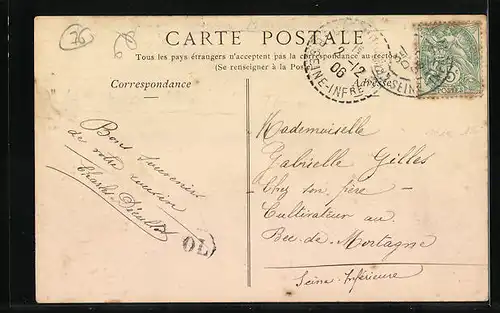 76
CARTE POSTALE
Tous les pays étrangers n'acceptent pas la correspondance au recto
(Se renseigner à la Poste)
Correspondance
Adresse
2 - 12
06
SEINE-INFRE
Bons souvenirs
de votre cousin
Charles
OL
Mademoiselle
Gabrielle Gilles
Chez son frère
Cultivateur au
Bec-de-Mortagne
Seine-Inférieure